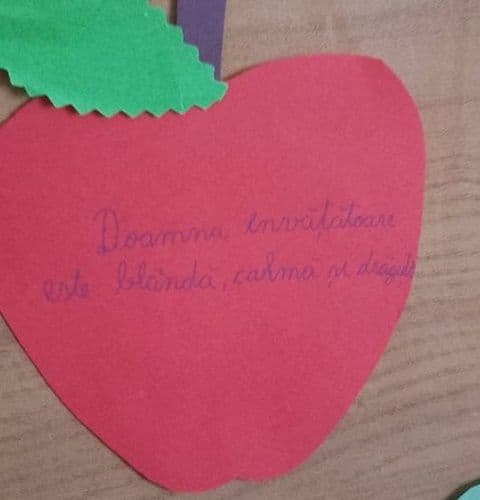 Doamna învățătoare
este blândă, calmă și drăguță